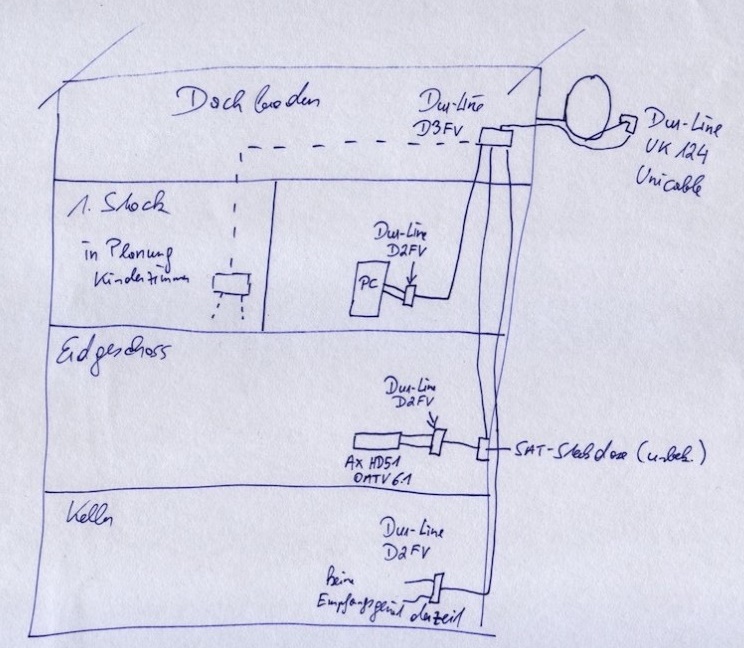 Dachboden
Dur-Line
D3FV
Dur-Line
UK 124
Unicable
1. Stock
in Planung
Kinderzimmer
Dur-Line
D2FV
PC
Erdgeschoss
Dur-Line
D2FV
AX HD51
OATV 6.1
SAT-Steckdose (unbek.)
Keller
Dur-Line
D2FV
keine
Empfangsgerät derzeit